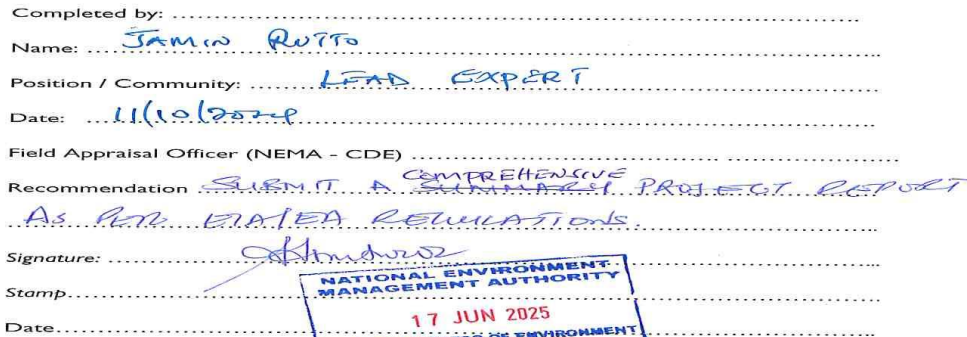 Completed by: ..........
Name: JAMIN RUTTO
Position / Community: LEAD EXPERT
Date: 11/10/2024
Field Appraisal Officer (NEMA - CDE) ..........
COMPREHENSIVE
Recommendation SUBMIT A SUMMARY PROJECT REPORT
AS PER EIA/EA REGULATIONS.
Signature:
NATIONAL ENVIRONMENT
MANAGEMENT AUTHORITY
Stamp..........
17 JUN 2025
Date..........
OF ENVIRONMENT